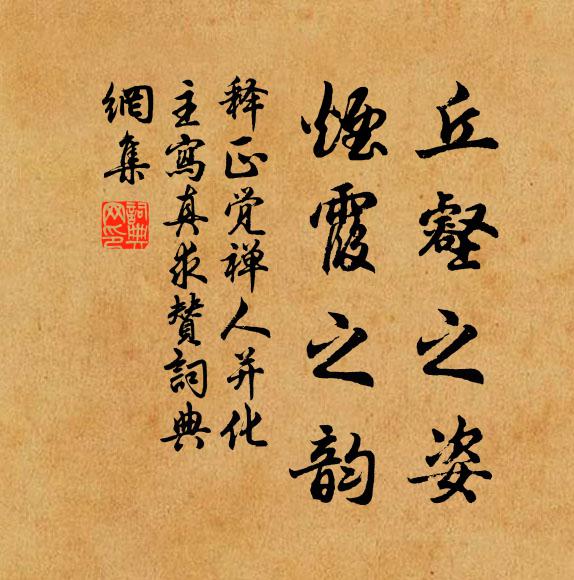 丘壑之姿
煙霞之韵
释正觉禅人并化
主寫真求贊詞典
網集
詞典網印